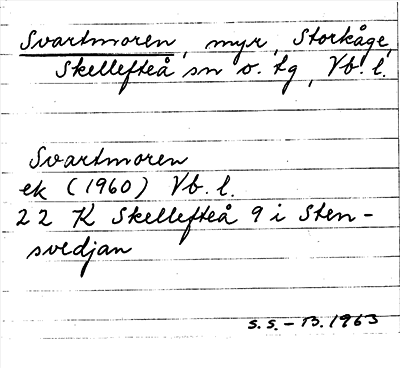 Svartmoren, myr, Storkåge,
Skellefteå sn o. tg, Vb. l.
Svartmoren
ek (1960) Vb. l.
22 K Skellefteå 9 i Sten-
svedjan
S.S. - B. 1963